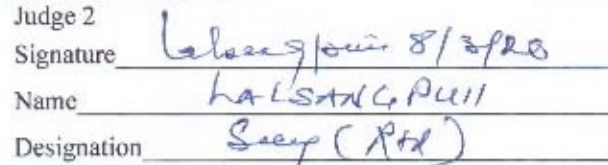 Judge 2
Signature Lalsangpuii 8/3/20
Name LALSANGPUII
Designation Secy (Rtd)